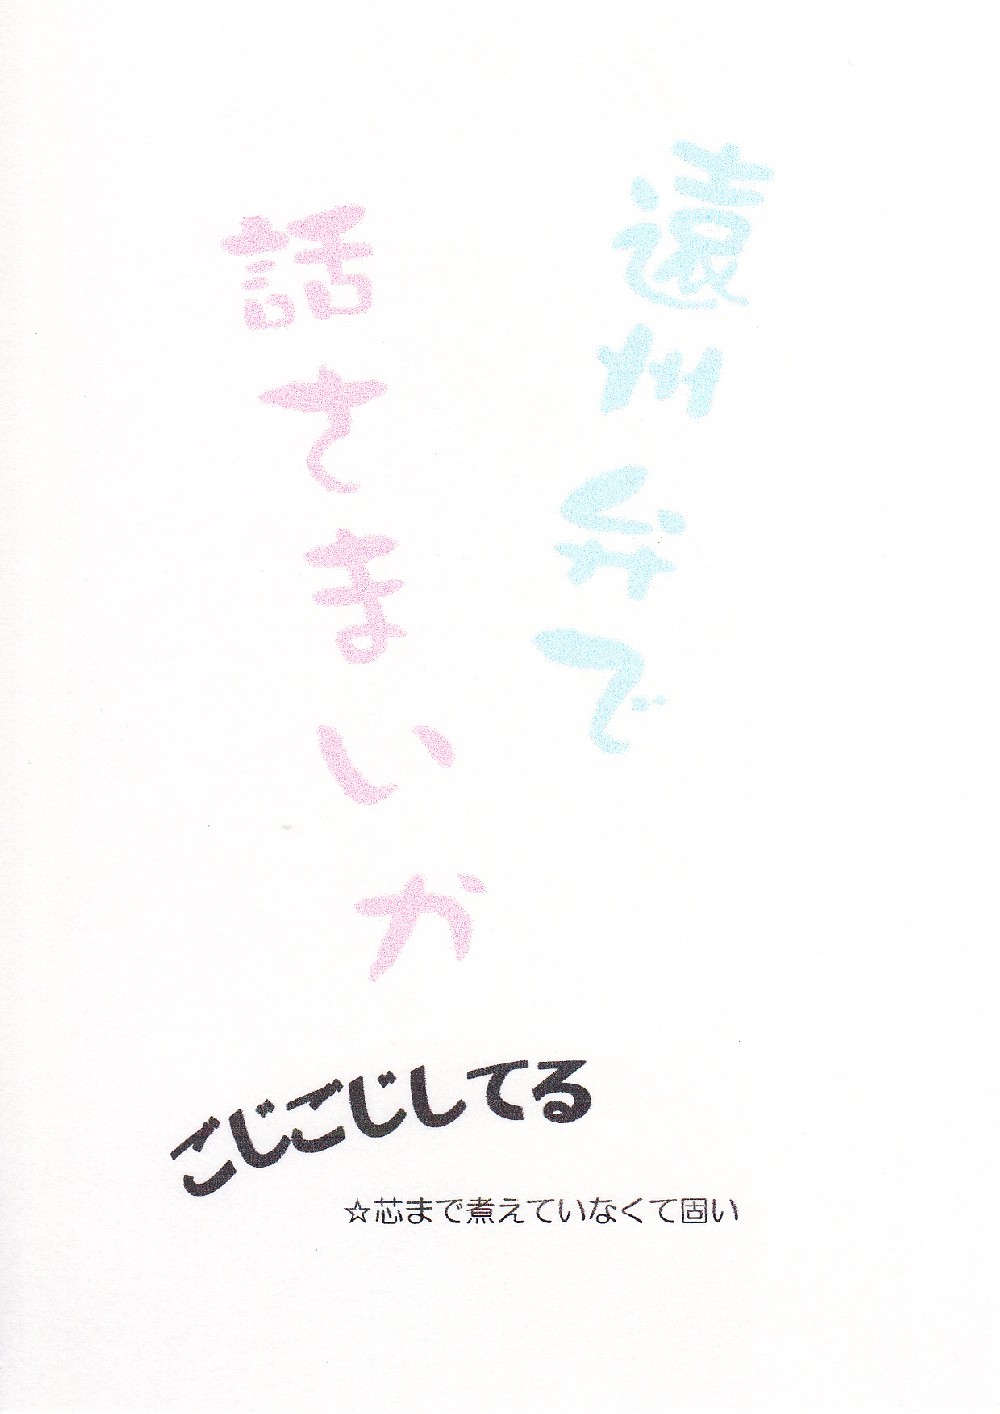 遠州弁で
話てまいか
ごじごじしてる
☆芯まで煮えていなくて固い